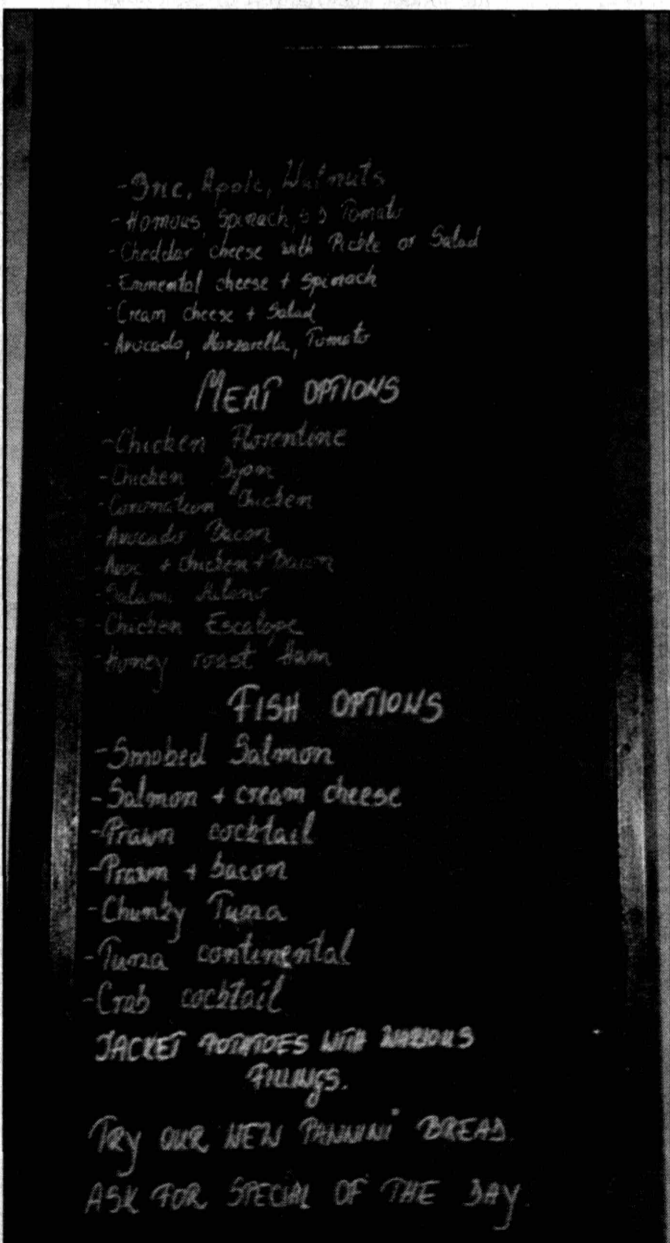 -Brie, Apple, Walnuts
-Homous, Spinach, Tomato
-Cheddar cheese with Pickle or Salad
-Emmental cheese + Spinach
-Cream cheese + Salad
-Avocado, Mozzarella, Tomato
MEAT OPTIONS
-Chicken Florentine
-Chicken Dijon
-Coronation Chicken
-Avocado Bacon
-Avoc + chicken + Bacon
-Salami Milano
-Chicken Escalope
-Honey roast Ham
FISH OPTIONS
-Smoked Salmon
-Salmon + cream cheese
-Prawn cocktail
-Prawn + bacon
-Chunky Tuna
-Tuna continental
-Crab cocktail
JACKET POTATOES WITH VARIOUS
FILLINGS.
TRY OUR NEW PANNINI BREAD.
ASK FOR SPECIAL OF THE DAY.